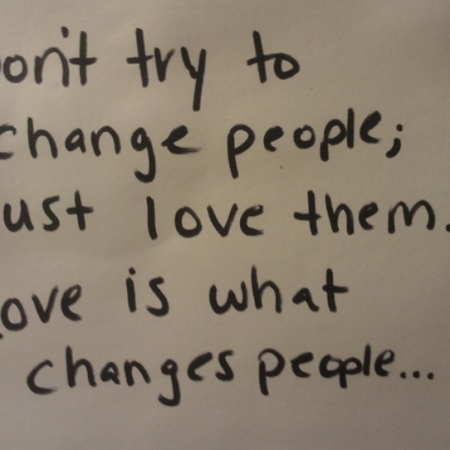 on't try to
change people;
ust love them.
ove is what
changes people...